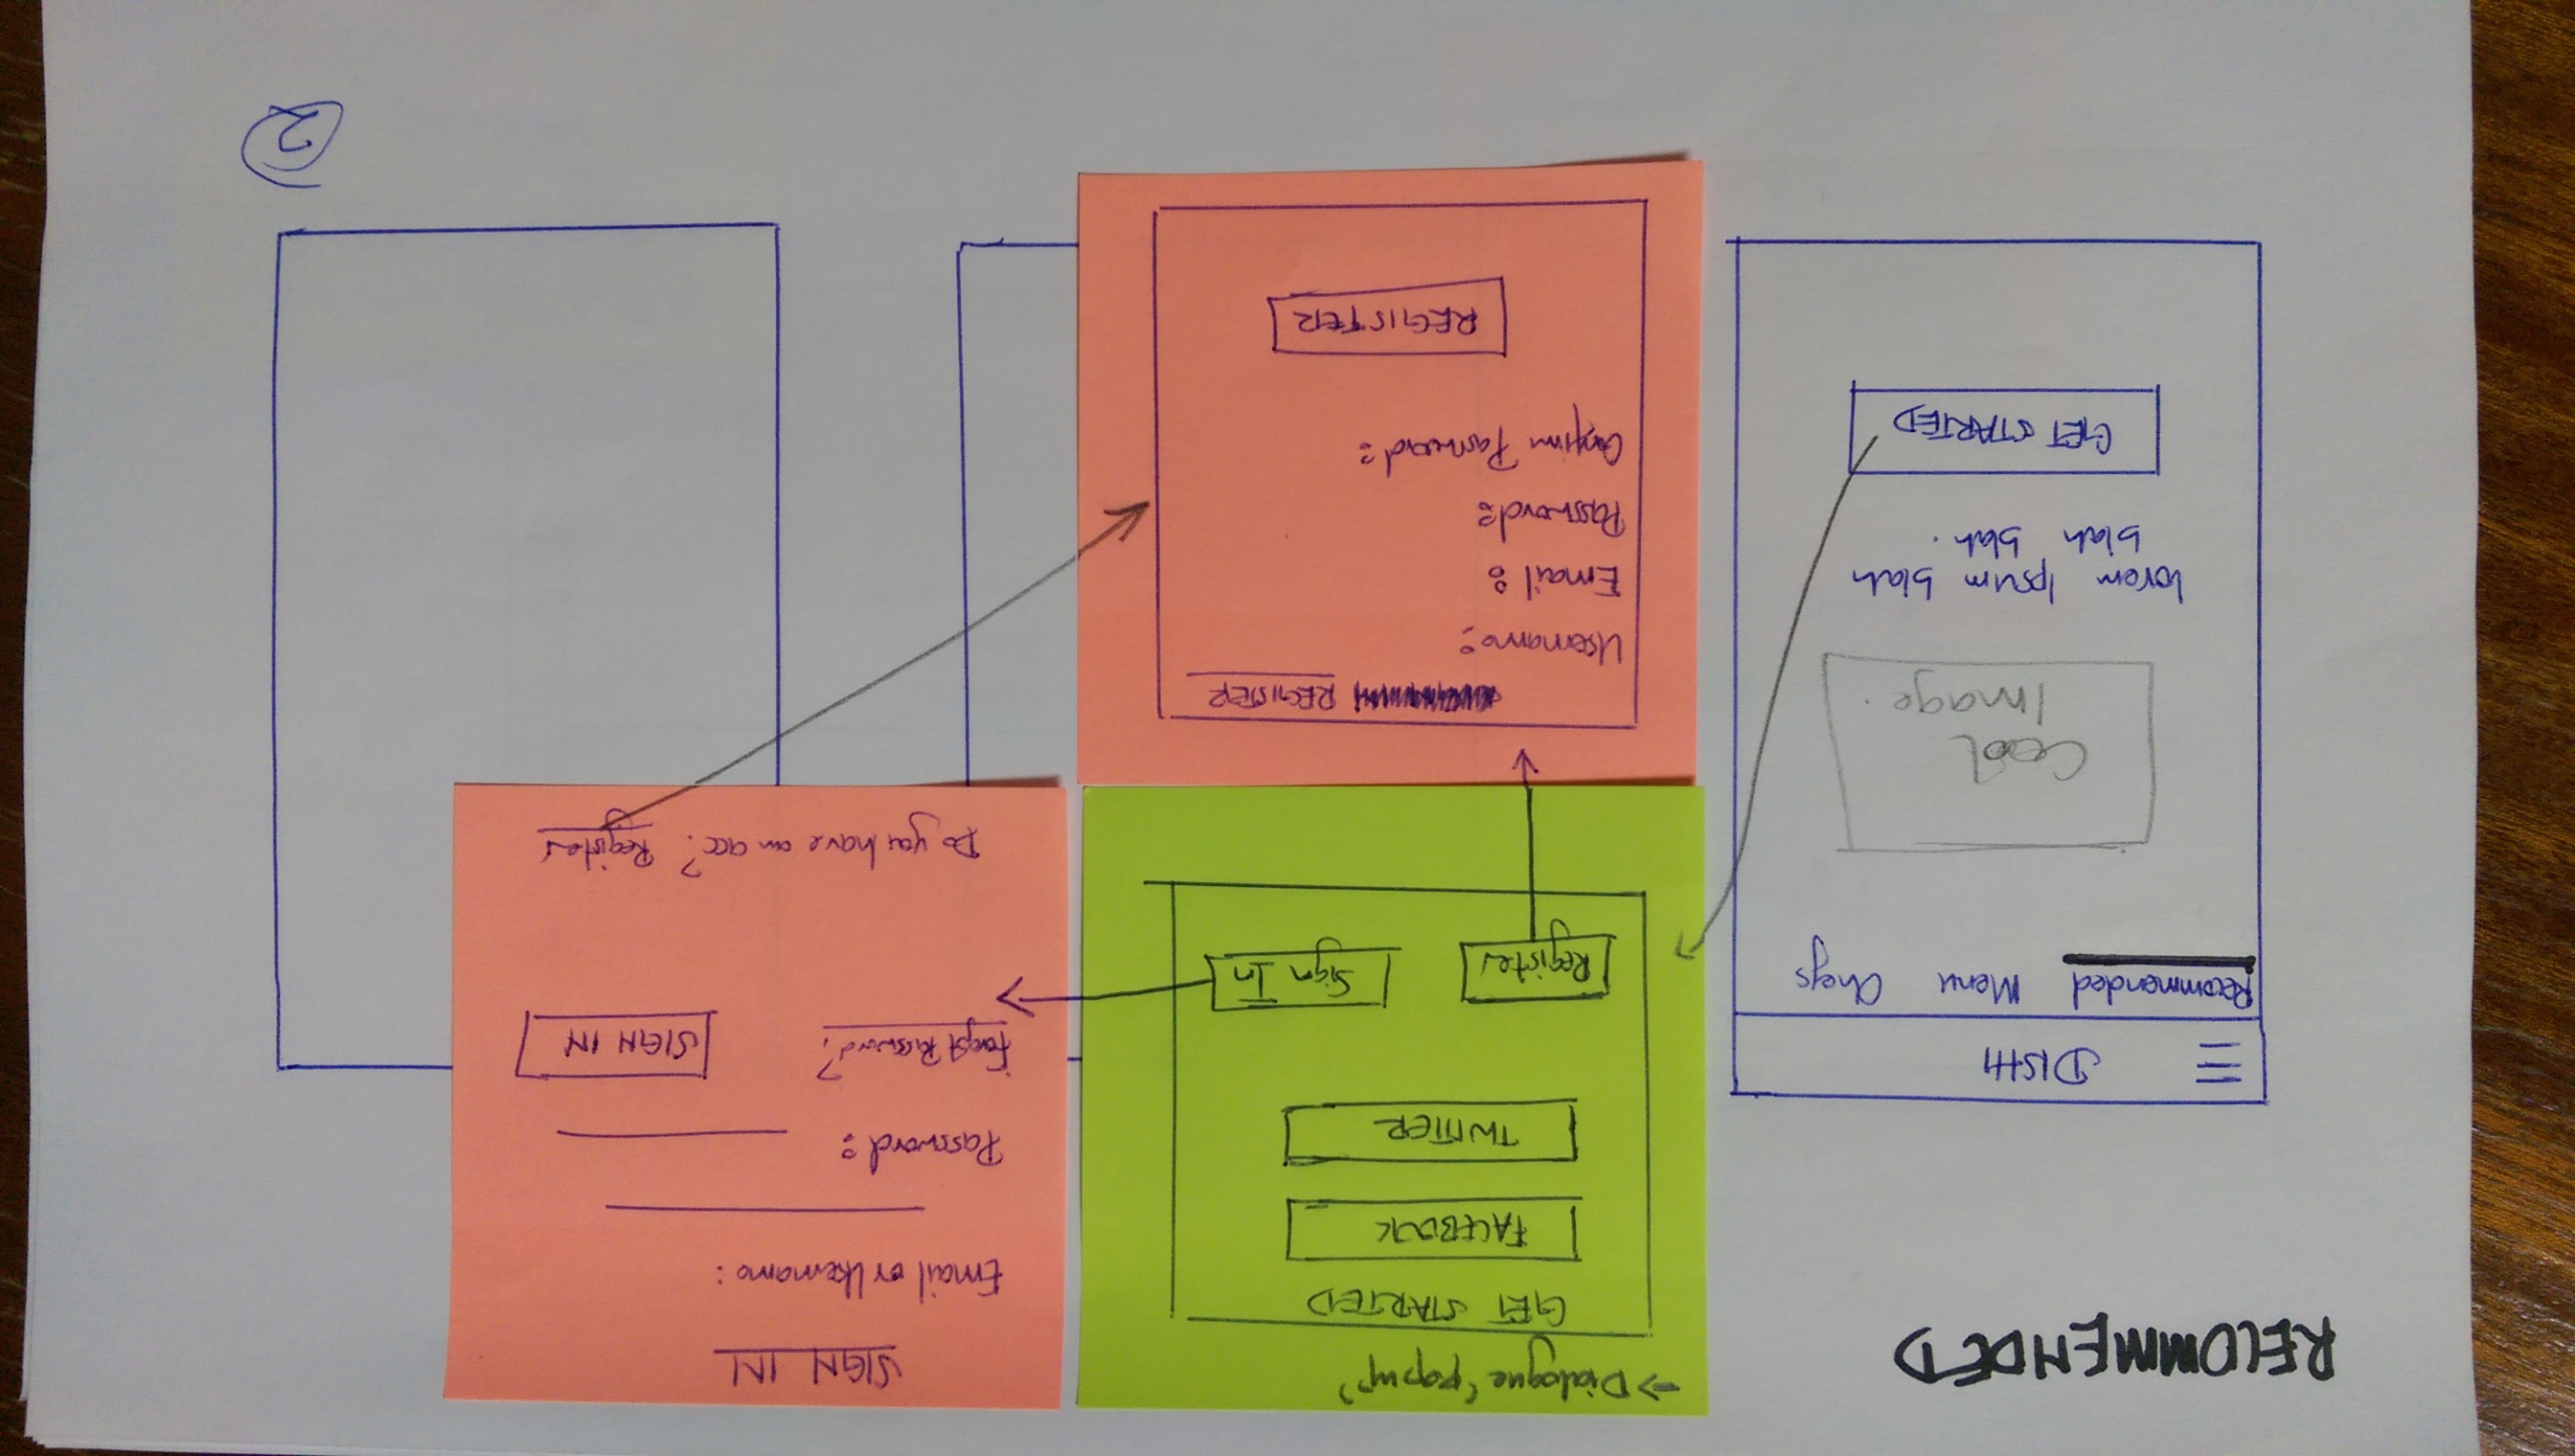 RECOMMENDED
DISHI
Recommended Menu Chefs
Cool
Image.
lorem Ipsum blah
blah blah.
GET STARTED
→ Dialogue 'popup'
GET STARTED
FACEBOOK
TWITTER
Register Sign In
SIGN IN
Email or Username:
Password:
Forgot Password? SIGN IN
Do you have an acc? Register
REGISTER
Username:
Email:
Password:
Confirm Password:
REGISTER
2